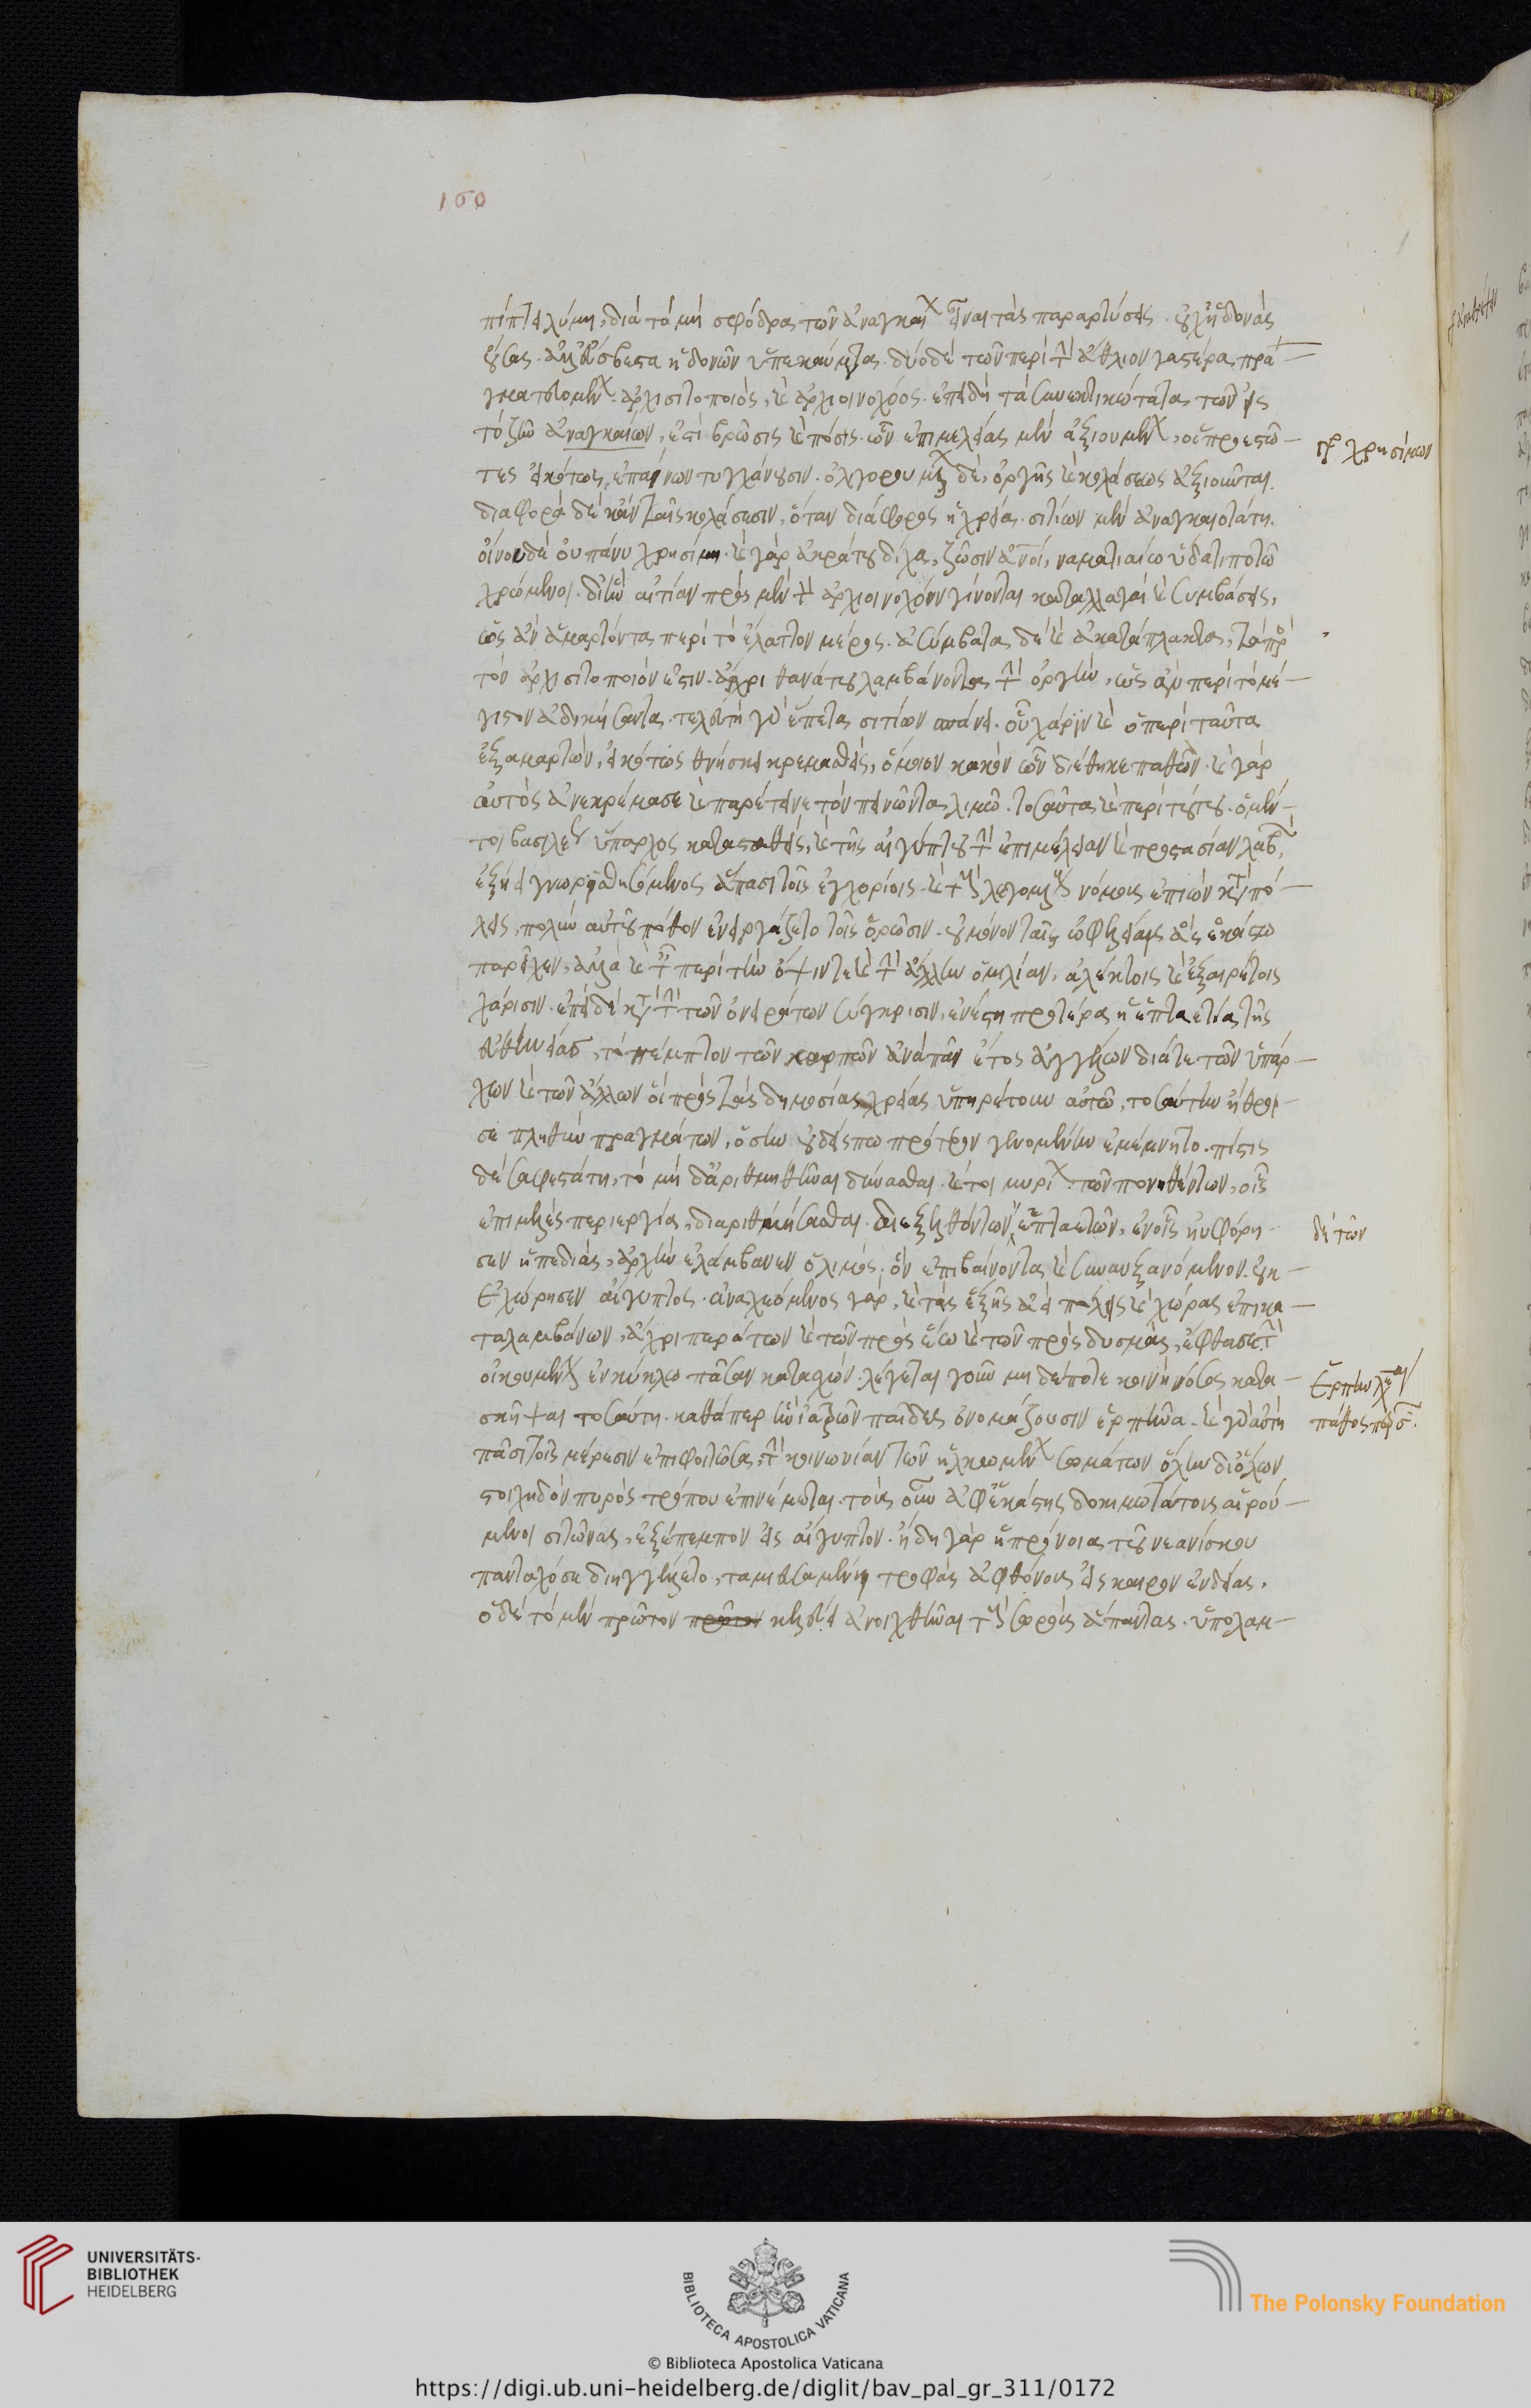 160
πίπτει λύμη, διὰ τὸ μὴ σφόδρα τῶν ἀναγκαί εἶναι τὰς παραρτύσεις. οὐχ ἡδονὰς
οὔσας. ἀλλ' εὐσβεστα ἡδονῶν ὑπεκκαύματα. δύο δὲ τῶν περὶ τὴν ἄθλιον γαστέρα, πρα
γματευομέν. ἀρχισιτοποιὸς, καὶ ἀρχιοινοχόος. ἐπειδὴ τὰ συνεκτικώτατα τῶν εἰς
τὸ ζῆν ἀναγκαίων, ἐστὶ βρῶσις καὶ πόσις. ὧν ἐπιμελείας μὲν ἀξιουμέν, οἱ προεστῶ
τες εἰκότως ἐπαίνων τυγχάνουσιν. ὀλιγορουμ δὲ, ὀργῆς καὶ κολάσεως ἀξιοῦνται.
διαφορὰ δὲ κἀν ταῖς κολάσεσιν, ὅταν διάφορος ἡ χρεία. σιτίων μὲν ἀναγκαιοτάτη.
οἴνου δὲ οὐ πάνυ χρησίμη. καὶ γὰρ ἀκράτου δίχα, ζῶσιν ἄνοι, ναματιαίω ὕδατι ποτῶ
χρώμενοι. δι' ἣν αἰτίαν πρὸς μὲν τὸν ἀρχιοινοχόον γίνονται καταλλαγαὶ καὶ συμβάσεις,
ὡς ἂν ἁμαρτόντα περὶ τὸ ἔλαττον μέρος. ἀσύμβατα δὲ καὶ ἀκατάπλακτα, τὰ πρὸς
τὸν ἀρχισιτοποιὸν ἐστιν. ἄχρι θανάτου λαμβάνοντα τὴν ὀργὴν, ὡς ἂν περὶ τὸ μέ
γιστον ἀδικήσαντα. τελευτὴ γὰρ ἕπεται σιτίων σπάνει. οὗ χάριν καὶ ὁ περὶ ταῦτα
ἐξαμαρτὼν, εἰκότως θνήσκει κρεμασθεὶς, ὅμοιον κακὸν ὧν διέθηκε παθών. καὶ γὰρ
αὐτὸς ἀνεκρέμασε καὶ παρέτεινε τὸν πεινῶντα λιμῶ. τοσαῦτα καὶ περὶ τούτου. ὁ μέν
τοι βασιλε ὕπαρχος κατασταθεὶς, καὶ τῆς αἰγύπτου τὴν ἐπιμέλειαν καὶ προστασίαν λαβ,
ἐξήει γνωρισθησόμενος ἅπασι τοῖς ἐγχωρίοις. καὶ τοὺς λεγομέν νόμους ἐπιὼν κατὰ πό
λεις, πολὺν αὐτοῦ πόθον ἐνειργάζετο τοῖς ὁρῶσιν. οὐ μόνον ταῖς ὠφελείαις ἃς ἑκάστω
παρεῖχεν, ἀλλὰ καὶ ταῖς περὶ τὴν ὄψιν τε καὶ τὴν ἄλλην ὁμιλίαν, ἀλέκτοις καὶ ἐξαιρέτοις
χάρισιν. ἐπεὶ δὲ κατὰ τὴν τῶν ὀνειράτων σύγκρισιν, ἐνέστη προτέρα ἡ ἑπταετία τῆς
εὐθηνίας, τὸ πέμπτον τῶν καρπῶν ἀνὰ πᾶν ἔτος ἀγγέλλων διά τε τῶν ὑπάρ
χων καὶ τῶν ἄλλων οἳ πρὸς τὰς δημοσίας χρείας ὑπηρέτουν αὐτῶ, τοσαύτην ἤθροι
σε πληθὺν πραγμάτων, ὅσην οὐδείς πω πρότερον γενομένην ἐμέμνητο. πίστις
δὲ σαφεστάτη, τὸ μὴ δ' ἀριθμηθῆναι δύνασθαι. καίτοι μυρί τῶν πονηθέντων, οἷς
ἐπιμελὲς περιεργία, διαριθμήσασθαι. διεξελθόντων ἑπταετῶν, ἐν οἷς ηὐφόρη
σεν ἡ πεδιὰς, ἀρχὴν ἐλάμβανεν ὁ λιμός, ὃν ἐπιβαίνοντα καὶ συναυξανόμενον. οὐκ
ἐχώρησεν αἴγυπτος. ἀναχεόμενος γὰρ, καὶ τὰς ἑξῆς ἀεὶ πόλεις καὶ χώρας ἐπικα
ταλαμβάνων, ἄχρι περάτων καὶ τῶν πρὸς ἕω καὶ τῶν πρὸς δυσμὰς, ἔφθασε τὴν
οἰκουμέν ἐν κύκλω πᾶσαν κατασχών. λέγεται γοῦν μηδέποτε κοινὴ νόσος κατα
σκῆψαι τοσαύτη. καθάπερ ἣν ἰατρῶν παῖδες ὀνομάζουσιν ἕρπηνα. καὶ γὰρ αὕτη
πᾶσι τοῖς μέρεσιν ἐπιφοιτῶσα, τὴν κοινωνίαν τῶν ἡλκωμέν σωμάτων ὅλην δι' ὅλων
στοιχηδὸν πυρὸς τρόπου ἐπινέμεται. τοὺς οὖν ἀφ' ἑκάστης δοκιμωτάτους αἱρού
μενοι σιτῶνας, ἐξέπεμπον εἰς αἴγυπτον. ἤδη γὰρ ἡ πρόνοια τοῦ νεανίσκου
πανταχόσε διηγγέλλετο, ταμιευσαμένη τροφὰς ἀφθόνους εἰς καιρον ἐνδείας.
ὁ δὲ τὸ μὲν πρῶτον πρῶτον κελεύει ἀνοιχθῆναι τοὺς σοροὺς ἅπαντας. ὑπολαμ
γρ χρησίμων
δὲ τῶν
Ἕρπην
πάθος
UNIVERSITÄTS-
BIBLIOTHEK
HEIDELBERG
BIBLIOTECA APOSTOLICA VATICANA
The Polonsky Foundation
© Biblioteca Apostolica Vaticana
https://digi.ub.uni-heidelberg.de/diglit/bav_pal_gr_311/0172